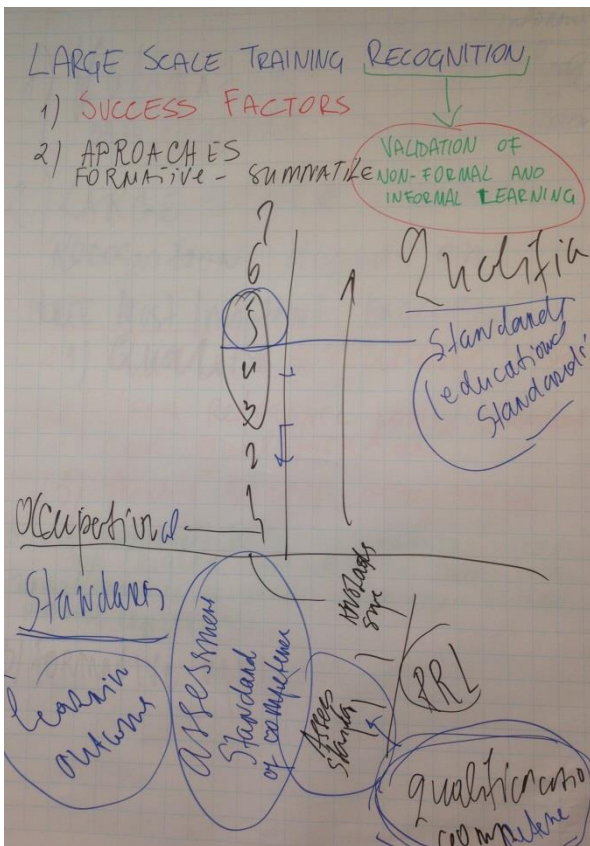 LARGE SCALE TRAINING RECOGNITION
1) SUCCESS FACTORS
2) APROACHES
FORMATIVE - SUMMATIVE
VALIDATION OF
NON-FORMAL AND
INFORMAL LEARNING
7
6
5
4
3
2
1
Qualifia
Standards
(educational
Standards
Occupational
Standards
learnin
outcome
assessment
Standard
of competence
Assess
Standa
PRL
qualificatio
competene